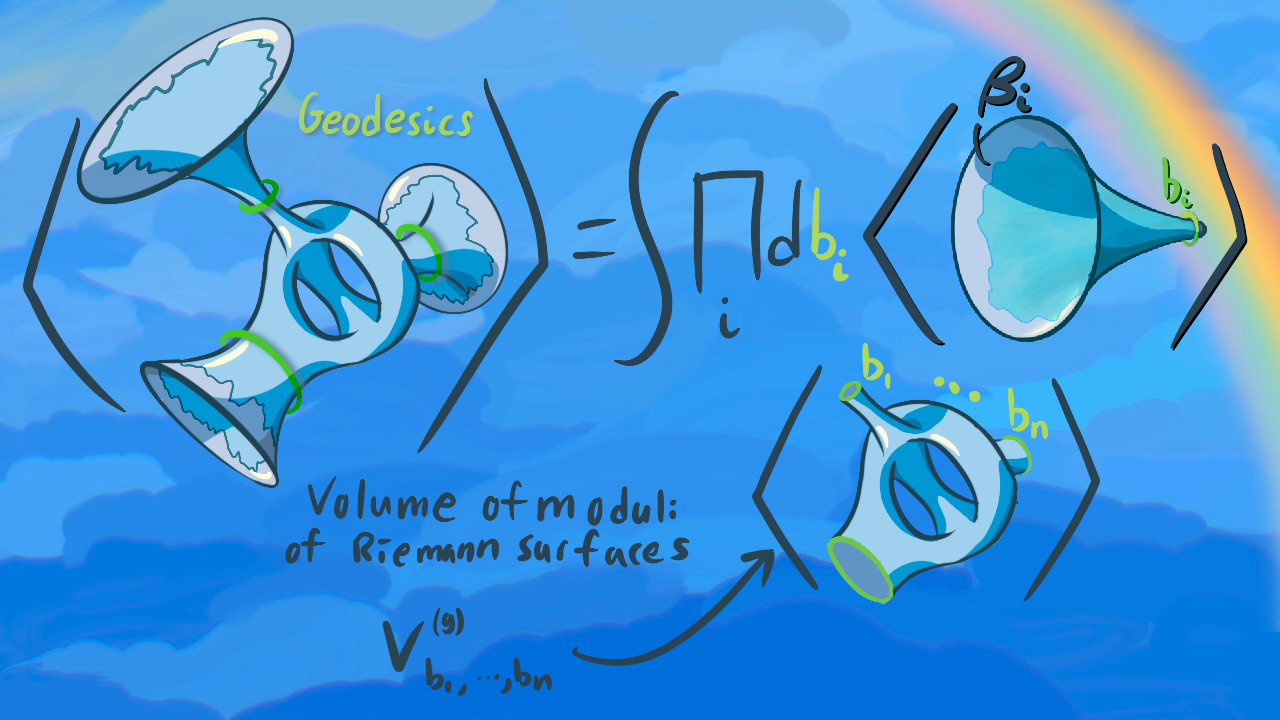 Geodesics
= ∫ ∏ i d b_i
β_i
b_i
b_1 ... b_n
Volume of moduli
of Riemann surfaces
V^(g)_{b_1, ..., b_n}